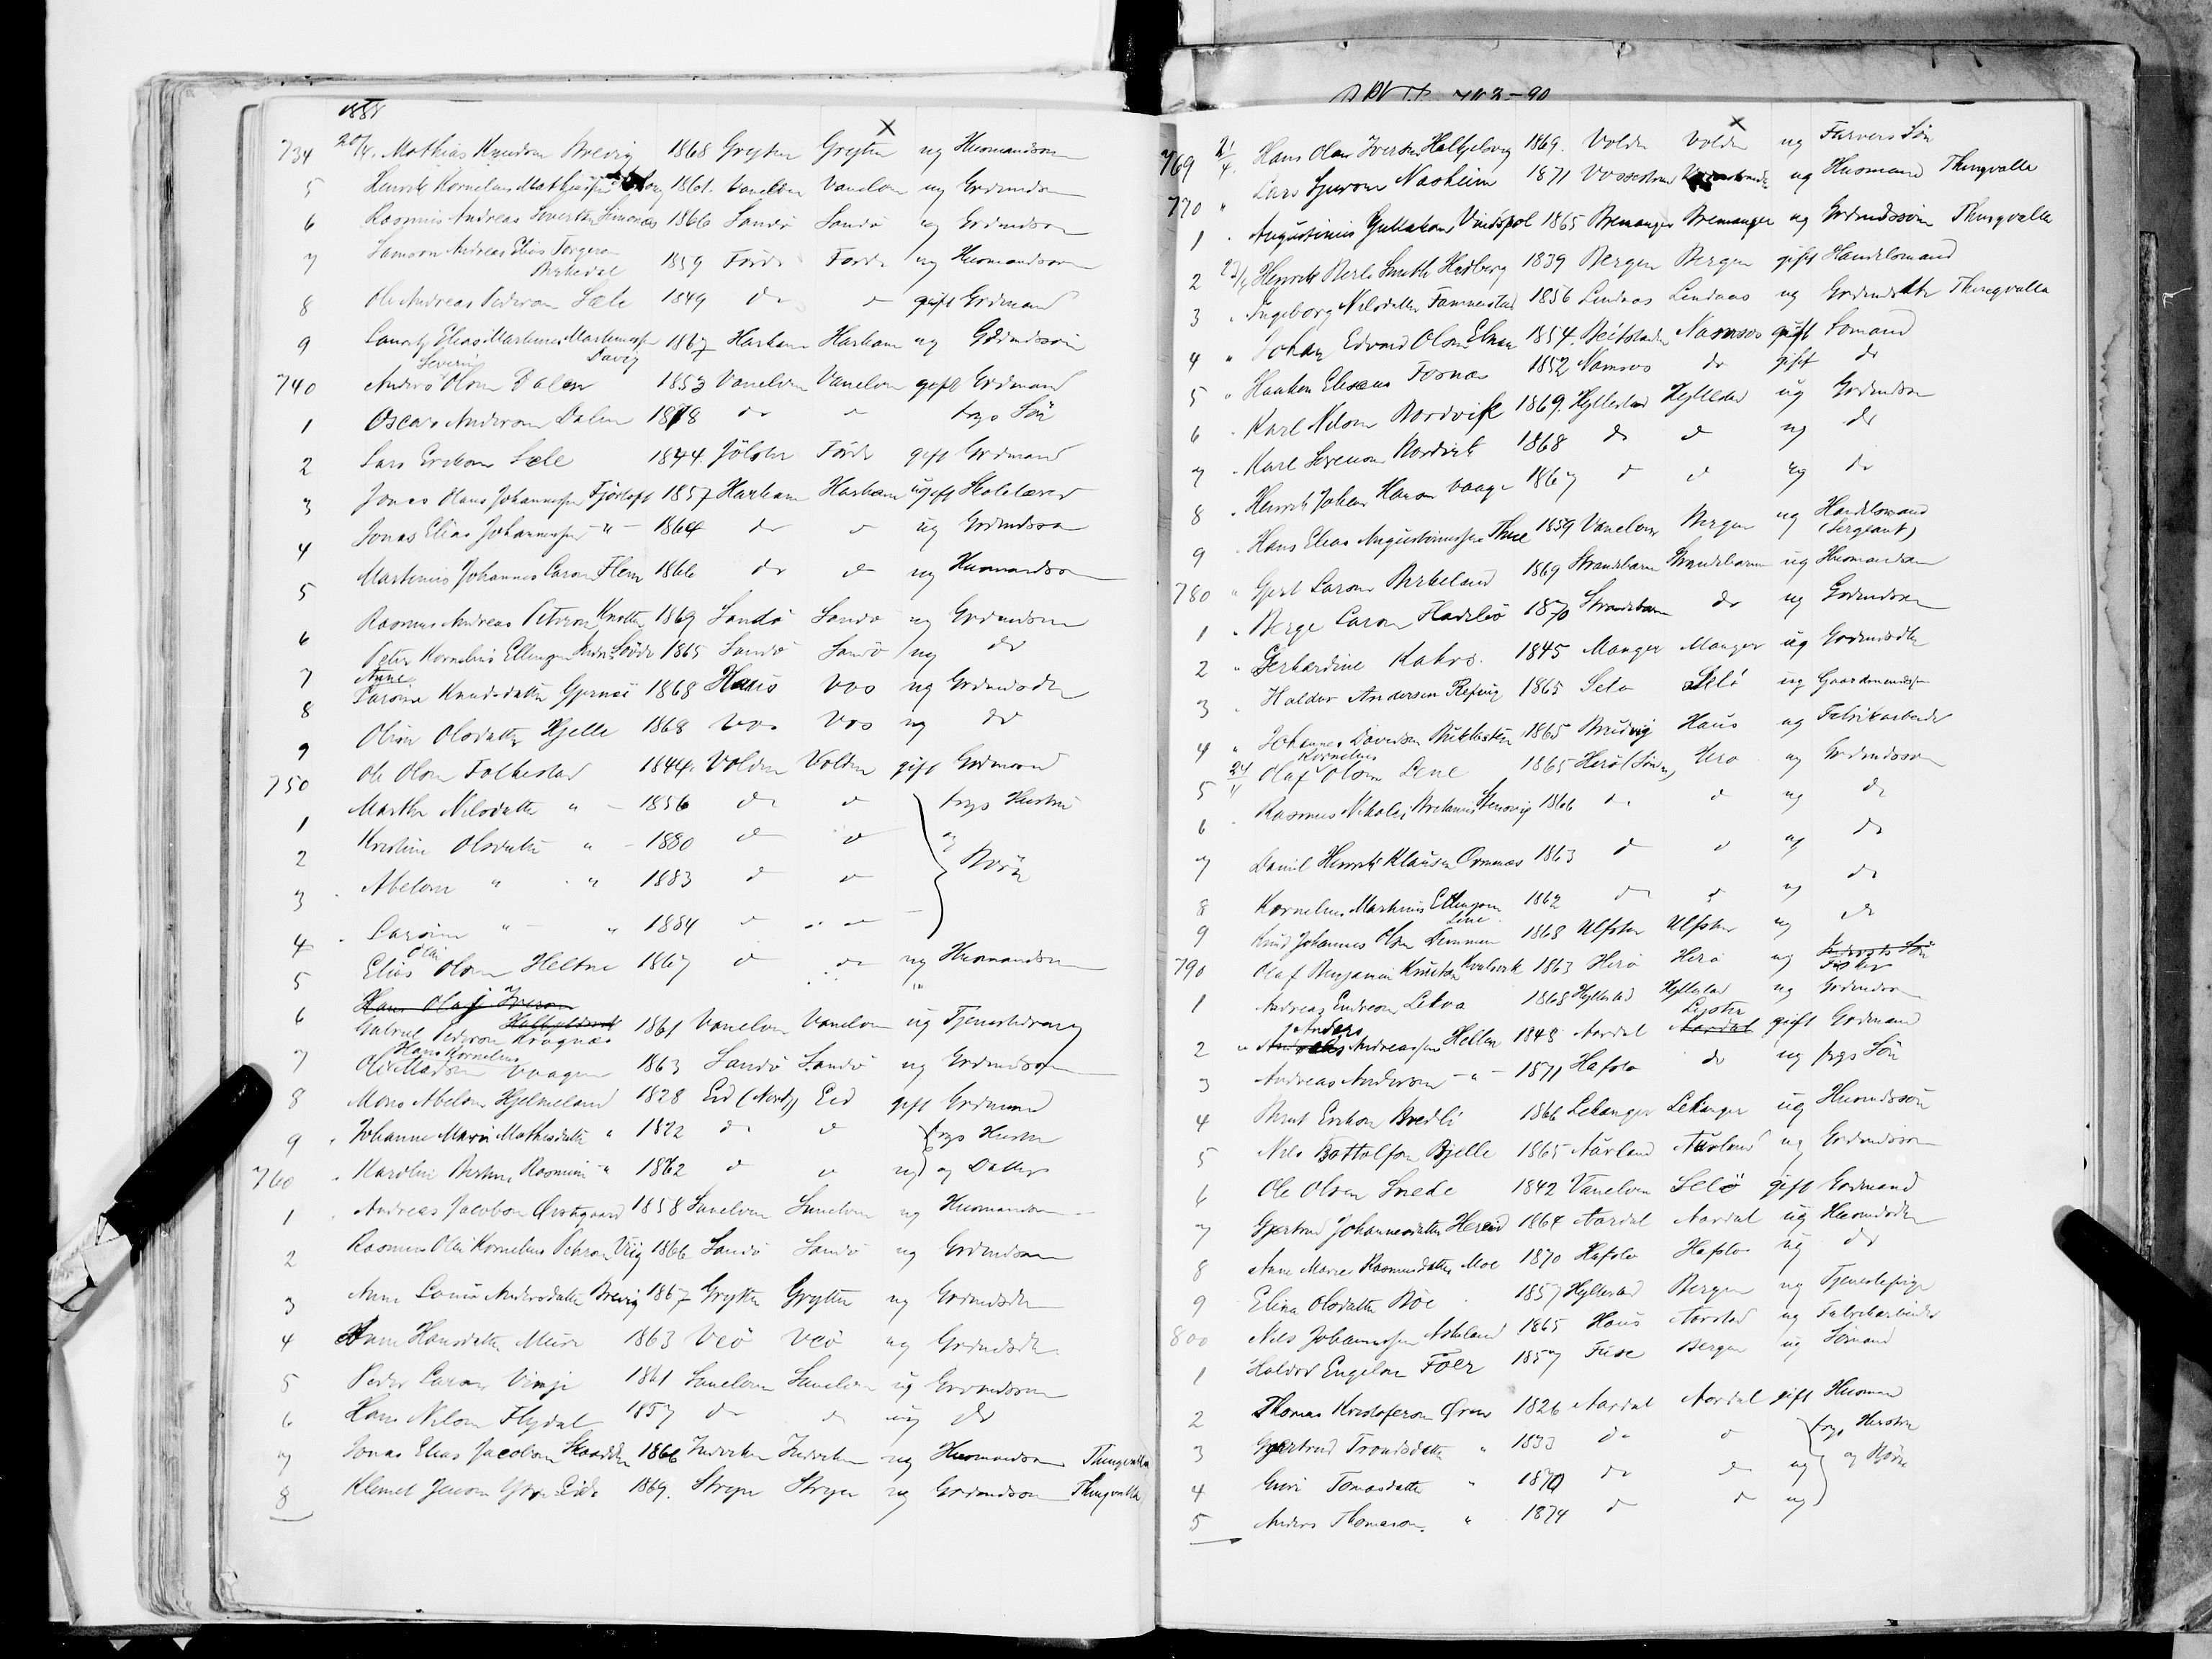 1888
734 20/4. Mathias Knudsen Brevig 1868 Grytten Grytten ug Husmandsøn
5 Henrik Kornelius Mathiassen 1861. Vanelven Vanelven ug Grdmdsøn
6 Rasmus Andreas Sivertsen 1866 Sandø Sandø ug Grdmdsøn
7 Samson Andreas Elias Torgersen 1859 Førde Førde ug Husmandsøn
Birkedal
8 Ole Andreas Pedersen Sæle 1849 do do gift Grdmand
9 Lauritz Elias Martinus Martinussen 1867 Harham Harham ug Grdmdssøn
Severin Davig
740 Anders Olsen Dalen 1853 Vanelven Vanelven gift Grdmand
1 Oscar Andersen Dalen 1878 do do frgs Søn
2 Lars Eriksen Sæle 1844. Jølster Førde gift Grdmand
3 Jonas Hans Johannessen Fjørtoft 1857 Harham Harham ugift Skolelærer
4 Jonas Elias Johannessen " 1864 do do ug Grdmdssøn
5 Martinus Johannes Larsen Flem 1866 do do ug Husmandsøn
6 Rasmus Andreas Petersen 1869 Sandø Sandø ug Grdmdsøn
7 Peter Kornelius Ellingsen 1865 Sandø Sandø ug do
Anne
8 Larsine Knudsdatter Gjernæs 1868 Haus Vos ug Grdmdsdtr
9 Oline Olsdatter Hjelle 1868 Vos Vos ug do
750 Ole Olsen Folkestad 1844. Volden Volden gift Grdmand
1 Marthe Nilsdatter " 1856 do do frgs Hustru
2 Kristine Olsdatter " 1880 do do og
3 Abelone " " 1883 do do Børn
4 Larsine " " 1884 do do
Olai
5 Elias Olsen Heltne 1867 do do ug Husmandsøn
Hans Olaj Iversen
6 Gabriel Pedersen Kragnæs 1861 Vanelven Vanelven ug Tjenestedreng
Hans Kornelius
7 Ole Madsen Vaagen 1863 Sandø Sandø ug Grdmdssøn
8 Mons Abelsen Hjelmeland 1828 Eid (Nordfj) Eid gift Grdmand
9 " Johanne Marie Mathisdatter " 1822 do do frgs Hustru
760 " Karoline Berthine Rasmine " 1862 do do ug og Datter
1 Andreas Jacobsen Ørstegaard 1858 Sunelven Sunelven ug Husmandsøn
2 Rasmus Olai Kornelius Petersen Viig 1866 Sandø Sandø ug Grdmdsøn
3 Anne Lovise Andersdatter Brevig 1867 Grytten Grytten ug Grdmdsdtr
4 Anne Hansdatter 1863 Veø Veø ug Grdmdsdtr
5 Peder Larsen Vinje 1861 Sunelven Sunelven ug Grdmdssøn
6 Hans Nilsen Flydal 1857 do do ug do
7 Jonas Elias Jacobsen 1866 Indviken Indviken ug Husmandsøn Thingvalla
8 Klemet Jensen Eide 1869. Stryn Stryn ug Grdmdssøn Thingvalla
769 21/4. Hans Olaus Iversen 1869. Volden Volden ug Farvers Søn
770 " Lars Sjursen Nasheim 1871 Vossestrand ug Husmand Thingvalla
1 " Augustinus Gullaksen Vindspol 1865 Bremanger Bremanger ug Grdmdssøn Thingvalla
2 23/4 Henrik Berle Smith Hedberg 1839 Bergen Bergen gift Handelsmand
3 " Ingeborg Nilsdatter Fammestad 1856 Lindaas Lindaas ug Grdmdsdtr Thingvalla
4 " Johan Edvard Olsen 1854. Beitstaden Namsos gift Sømand
5 " Haakon Eliseus Fosnæs 1852 Namsos do gift do
6 " Karl Nilsen Nordvik 1869. Hyllestad Hyllestad ug Grdmdssøn
7 " Karl Severson Nordvik 1868 do do ug do
8 " Henrik Johan Hansen Vaage 1867 do do ug do
9 " Hans Elias Augustinussen Thue 1859 Vanelven Bergen ug Handelsmand
(Sergeant)
780 " Gjert Larsen Birkeland 1869 Strandebarm Strandebarm ug Husmandsøn
1 " Berge Larsen Fladebø 1870 Strandebarm do ug Grdmdsøn
2 " Gerhardine Kahrs. 1845 Manger Manger ug Grdmdsdtr
3 " Haldor Andersen Refvig 1865 Selø Selø ug Gaardmandssøn
4 " Johannes Davidsen 1865 Bruvig Haus ug Fabrikarbeider
Kornelius
5 24/4 Olaf Olsen Lene 1865 Herø (Søndm) Herø ug Grdmdssøn
6 " Rasmus Nikolai 1866 do do ug do
7 Daniel Henrik Klausen 1863 do do ug do
8 Kornelius Martinus Ellingsen 1862 do do ug do
Lene
9 Knud Johannes Olsen Demmen 1868 Ulfsten Ulfsten ug do
790 Olaf Benjamin Knutsen Kvalsvik 1863 Herø Herø ug
Fisker
1 Andreas Endresen Lekva 1868 Hyllestad Hyllestad ug Grdmdsøn
Anders Lyster
2 " Andreas Andreassen Hellen 1848 Aardal Aardal gift Grdmand
3 Andreas Andersen " 1871 Hafslo do ug frgs Søn
4 Bernt Eriksen Bredli 1866 Lekanger Lekanger ug Husmdssøn
5 Nils Bottolfsen Bjelle 1865 Aurland Aurland ug Grdmdssøn
6 Ole Olsen Srede 1842 Vanelven Selø gift Grdmand
7 Gjertrud Johannesdatter Hereid 1864 Aardal Aardal ug Husmdsdtr
8 Anne Marie Rasmusdatter Moe 1870 Hafslo Hafslo ug do
9 Elina Olsdatter Bøe 1857 Hyllestad Bergen ug Tjenestepige
800 Nils Johannessen Askeland 1865 Haus Aarstad ug Fabrikarbeider
1 Haldor Engelsen Foer 1857 Fuse Bergen ug Sømand
2 Thomas Kristofersen Øren 1826 Aardal Aardal gift Husmand
3 Gjertrud Trondsdatter " 1833 do do frgs Hustru
4 Guri Tomasdatter " 1870 do do ug og Børn
5 Anders Thomasen " 1874 do do ug